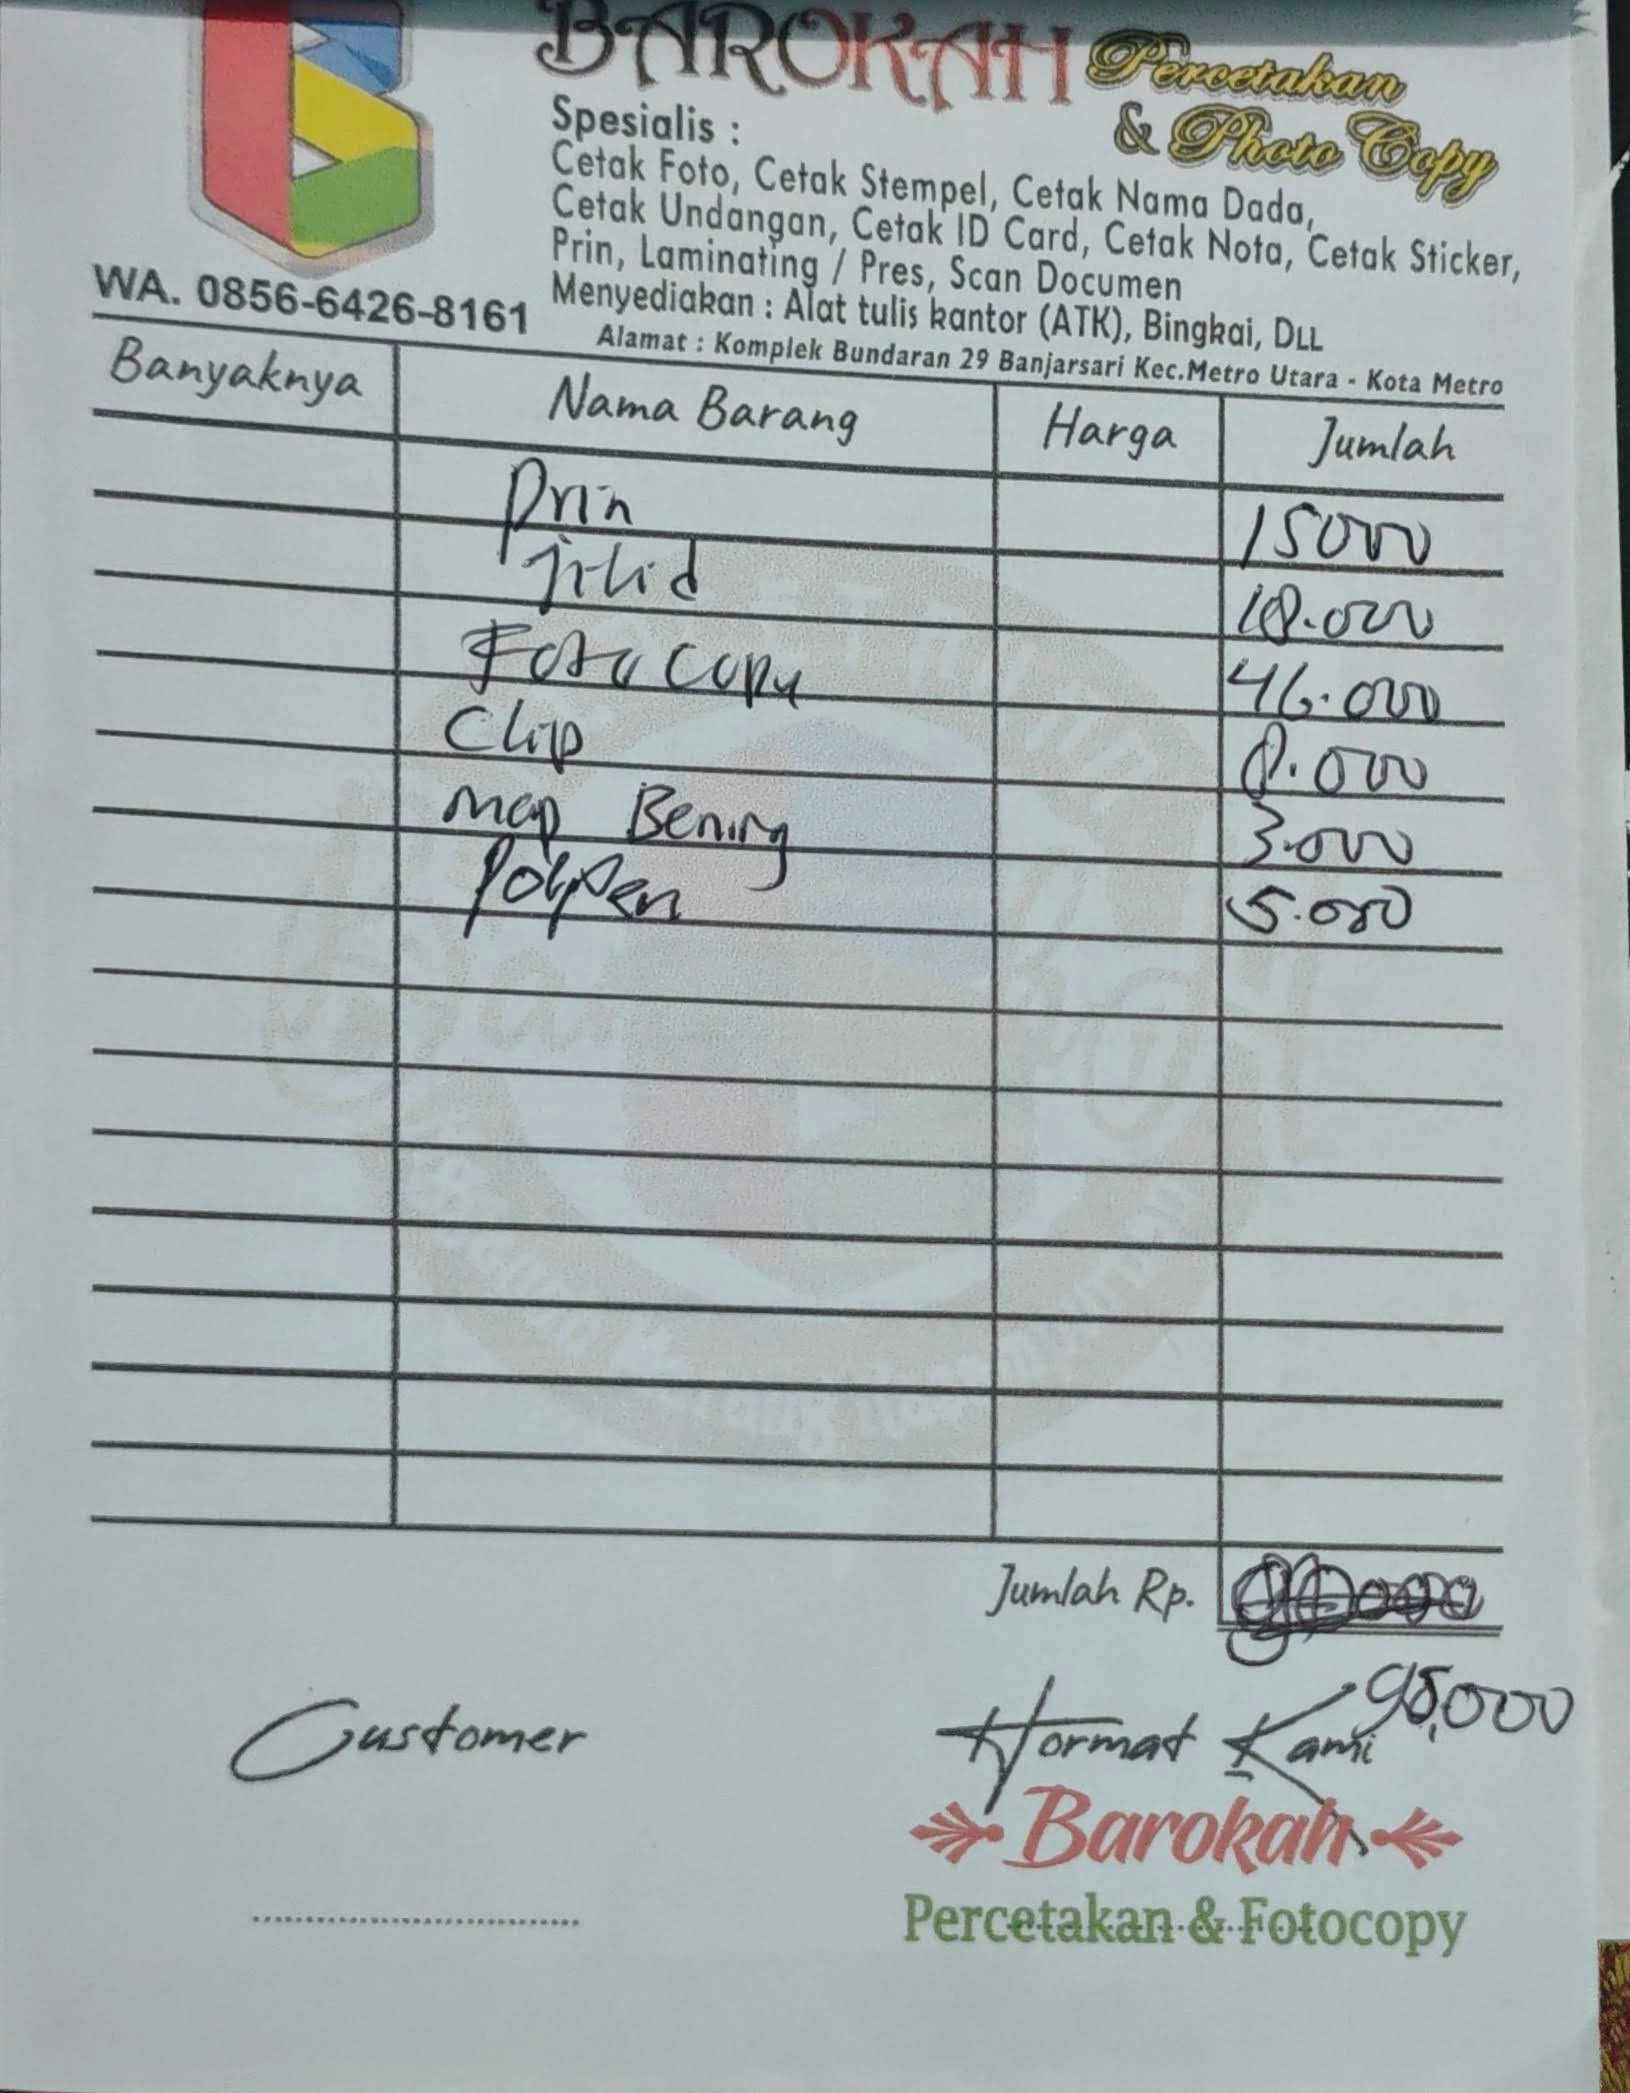 BAROKAH Percetakan
& Photo Copy
Spesialis :
Cetak Foto, Cetak Stempel, Cetak Nama Dada,
Cetak Undangan, Cetak ID Card, Cetak Nota, Cetak Sticker,
Prin, Laminating / Pres, Scan Documen
Menyediakan : Alat tulis kantor (ATK), Bingkai, DLL
WA. 0856-6426-8161
Alamat : Komplek Bundaran 29 Banjarsari Kec.Metro Utara - Kota Metro
Banyaknya Nama Barang Harga Jumlah
Prin 15000
jilid 18.000
Foto Copy 46.000
Clip 8.000
Map Bening 3.000
Polpen 5.000
Jumlah Rp.
95,000
Customer Hormat Kami
Barokah
Percetakan & Fotocopy